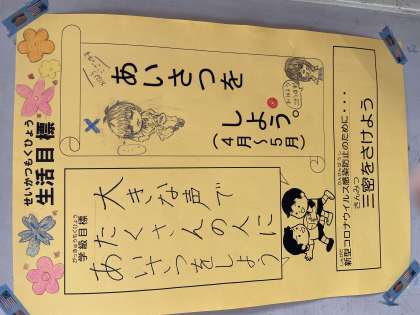 せいかつもくひょう
生活目標
あいさつを
しよう。
(4月～5月)
がっきゅうもくひょう
学級目標
大きな声で
たくさんの人に
あいさつをしよう
新型コロナウイルス感染防止のために・・・
さんみつ
三密をさけよう